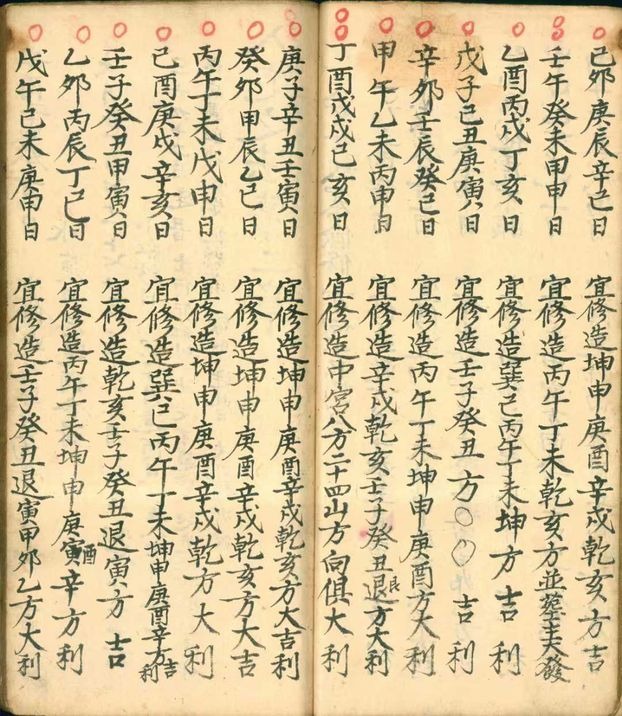 己卯庚辰辛巳日 宜修造坤申庚酉辛戌乾亥方吉
壬午癸未甲申日 宜修造丙午丁未乾亥方並葬主大發
乙酉丙戌丁亥日 宜修造巽巳丙午丁未坤方吉利
戊子己丑庚寅日 宜修造壬子癸丑方〇〇吉利
辛卯壬辰癸巳日 宜修造丙午丁未坤申庚酉方大利
甲午乙未丙申日 宜修造辛戌乾亥壬子癸丑退艮方大利
丁酉戊戌己亥日 宜修造中宮八方二十四山方向俱大利
庚子辛丑壬寅日 宜修造坤申庚酉辛戌乾亥方大吉利
癸卯甲辰乙巳日 宜修造坤申庚酉辛戌乾亥方大吉
丙午丁未戊申日 宜修造坤申庚酉辛戌乾方大利
己酉庚戌辛亥日 宜修造巽巳丙午丁未坤申庚酉辛方吉利
壬子癸丑甲寅日 宜修造乾亥壬子癸丑退寅方吉
乙卯丙辰丁巳日 宜修造丙午丁未坤申庚寅酉辛方利
戊午己未庚申日 宜修造壬子癸丑退寅甲卯乙方大利